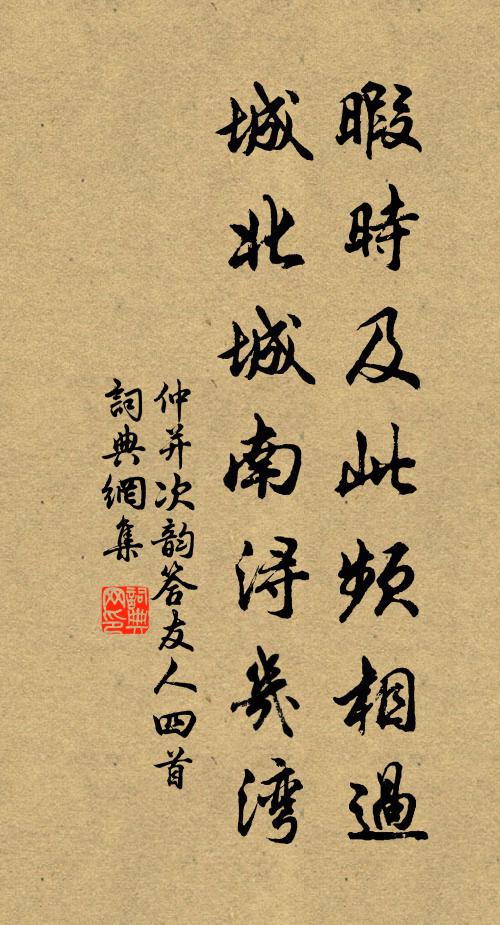 暇時及此頻相過
城北城南浔幾湾
仲并次韵答友人四首
詞典網集
詞典網印